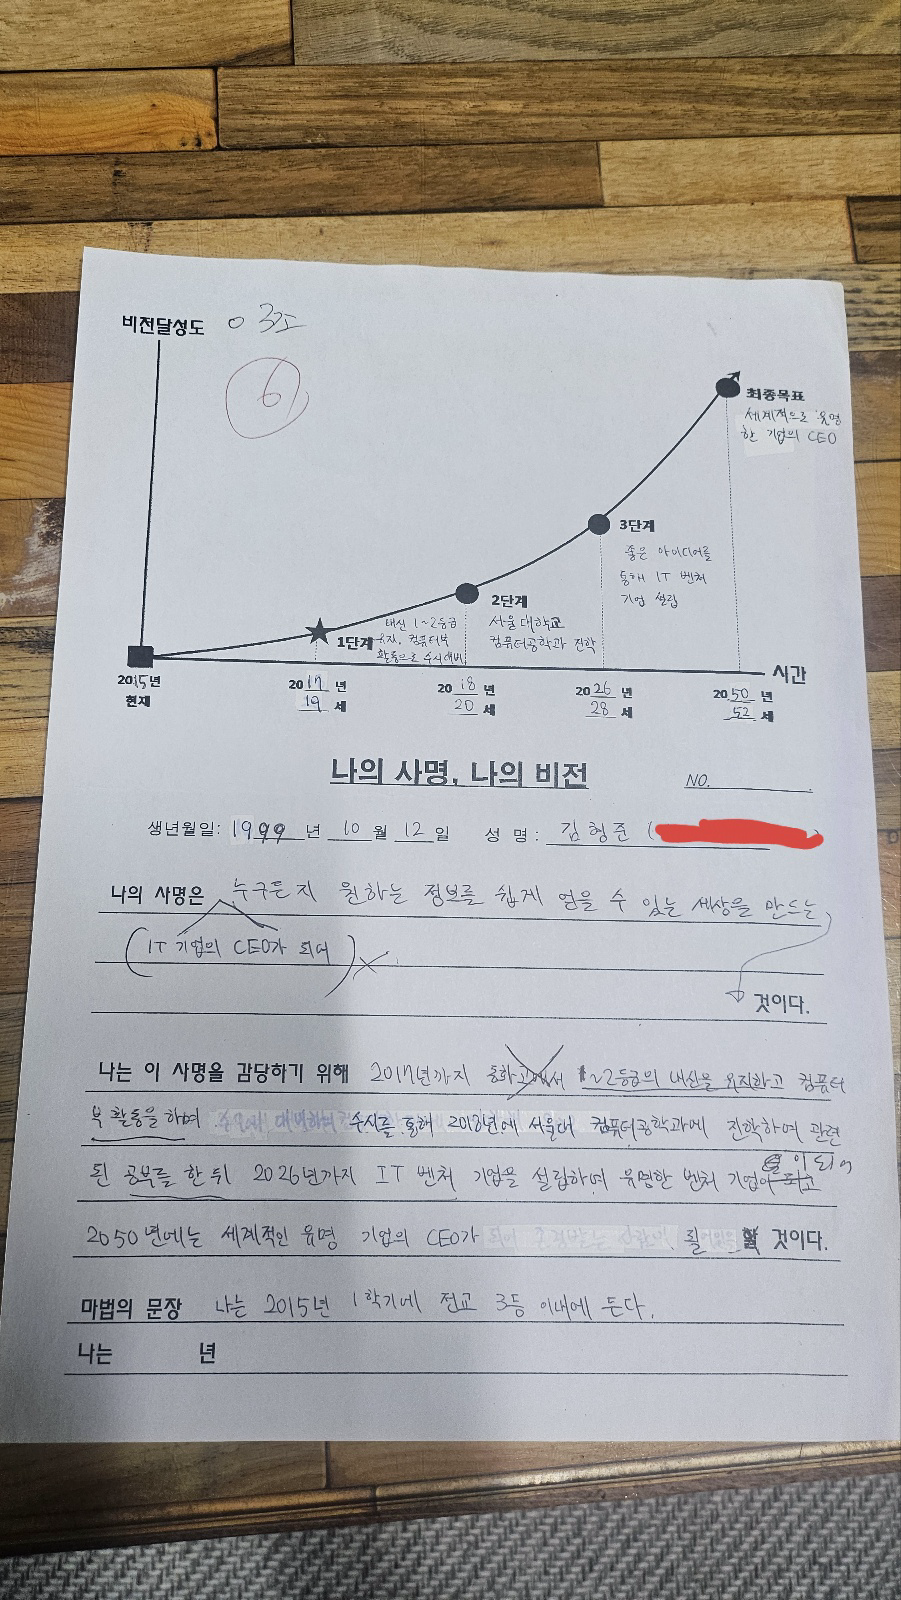 비전달성도 ○ 3조
6
최종목표
세계적으로 유명
한 기업의 CEO
3단계
좋은 아이디어를
통해 IT 벤처
기업 설립
2단계
서울대학교
컴퓨터공학과 진학
1단계
내신 1~2등급
유지, 컴퓨터부
활동으로 수시대비
시간
2015년
현재
2017년
19세
2018년
20세
2026년
28세
2050년
52세
나의 사명, 나의 비전
NO.
생년월일: 1999년 10월 12일 성명: 김형준 (
나의 사명은 누구든지 원하는 정보를 쉽게 얻을 수 있는 세상을 만드는
(IT 기업의 CEO가 되어)
것이다.
나는 이 사명을 감당하기 위해 2017년까지 1~2등급의 내신을 유지하고 컴퓨터
부 활동을 하며 수시를 통해 2018년에 서울대 컴퓨터공학과에 진학하여 관련
된 공부를 한 뒤 2026년까지 IT 벤처 기업을 설립하며 유명한 벤처 기업이 되어
2050년에는 세계적인 유명 기업의 CEO가 될 것이다.
마법의 문장 나는 2015년 1학기에 전교 3등 이내에 든다.
나는 년